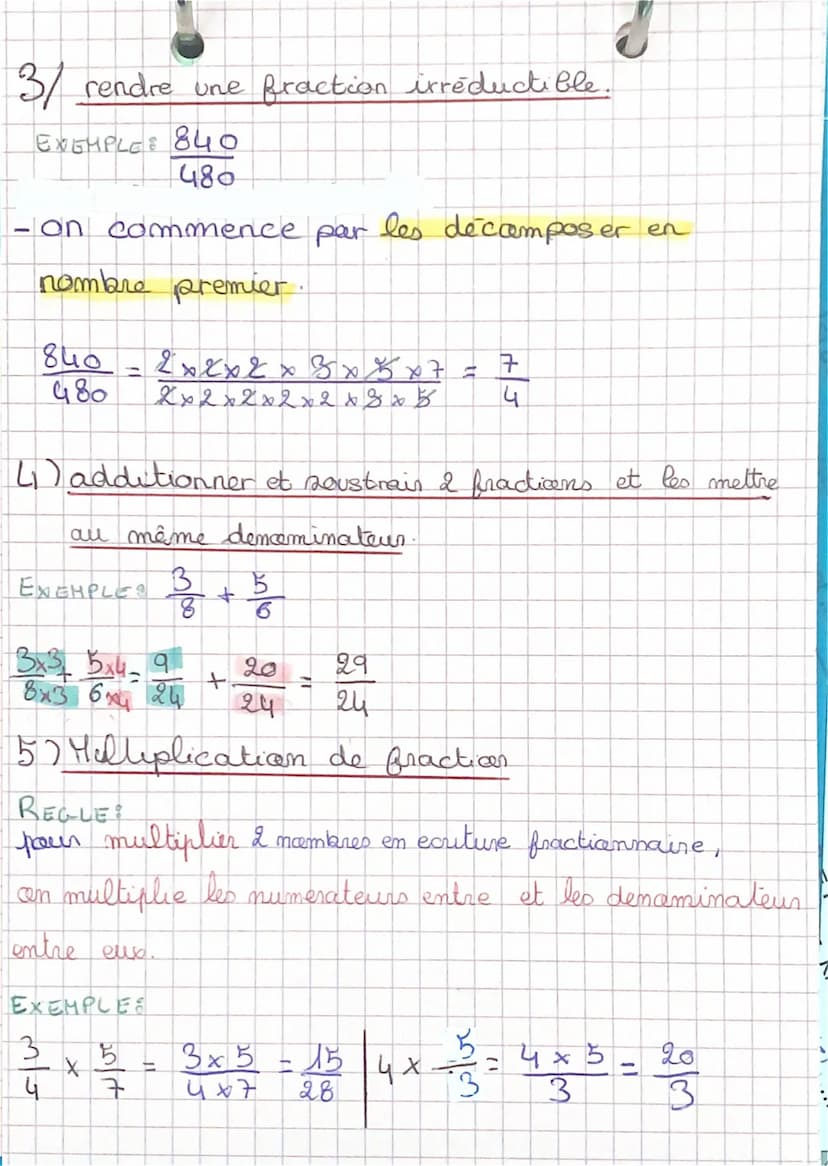 3/ rendre une fraction irréductible.
EXEMPLE: 840/480
- on commence par les décomposer en
nombre premier.
840/480 = 2×2×2×3×5×7/2×2×2×2×2×3×5 = 7/4
4) additionner et soustrais 2 fractions et les mettre
au même denominateur.
EXEMPLE: 3/8 + 5/6
3×3/8×3 + 5×4/6×4 = 9/24 + 20/24 = 29/24
5) Multiplication de fraction
REGLE:
pour multiplier 2 nombres en ecriture fractionnaire,
on multiplie les numerateurs entre et les denominateur
entre eux.
EXEMPLE:
3/4 × 5/7 = 3×5/4×7 = 15/28 | 4 × 5/3 = 4×5/3 = 20/3